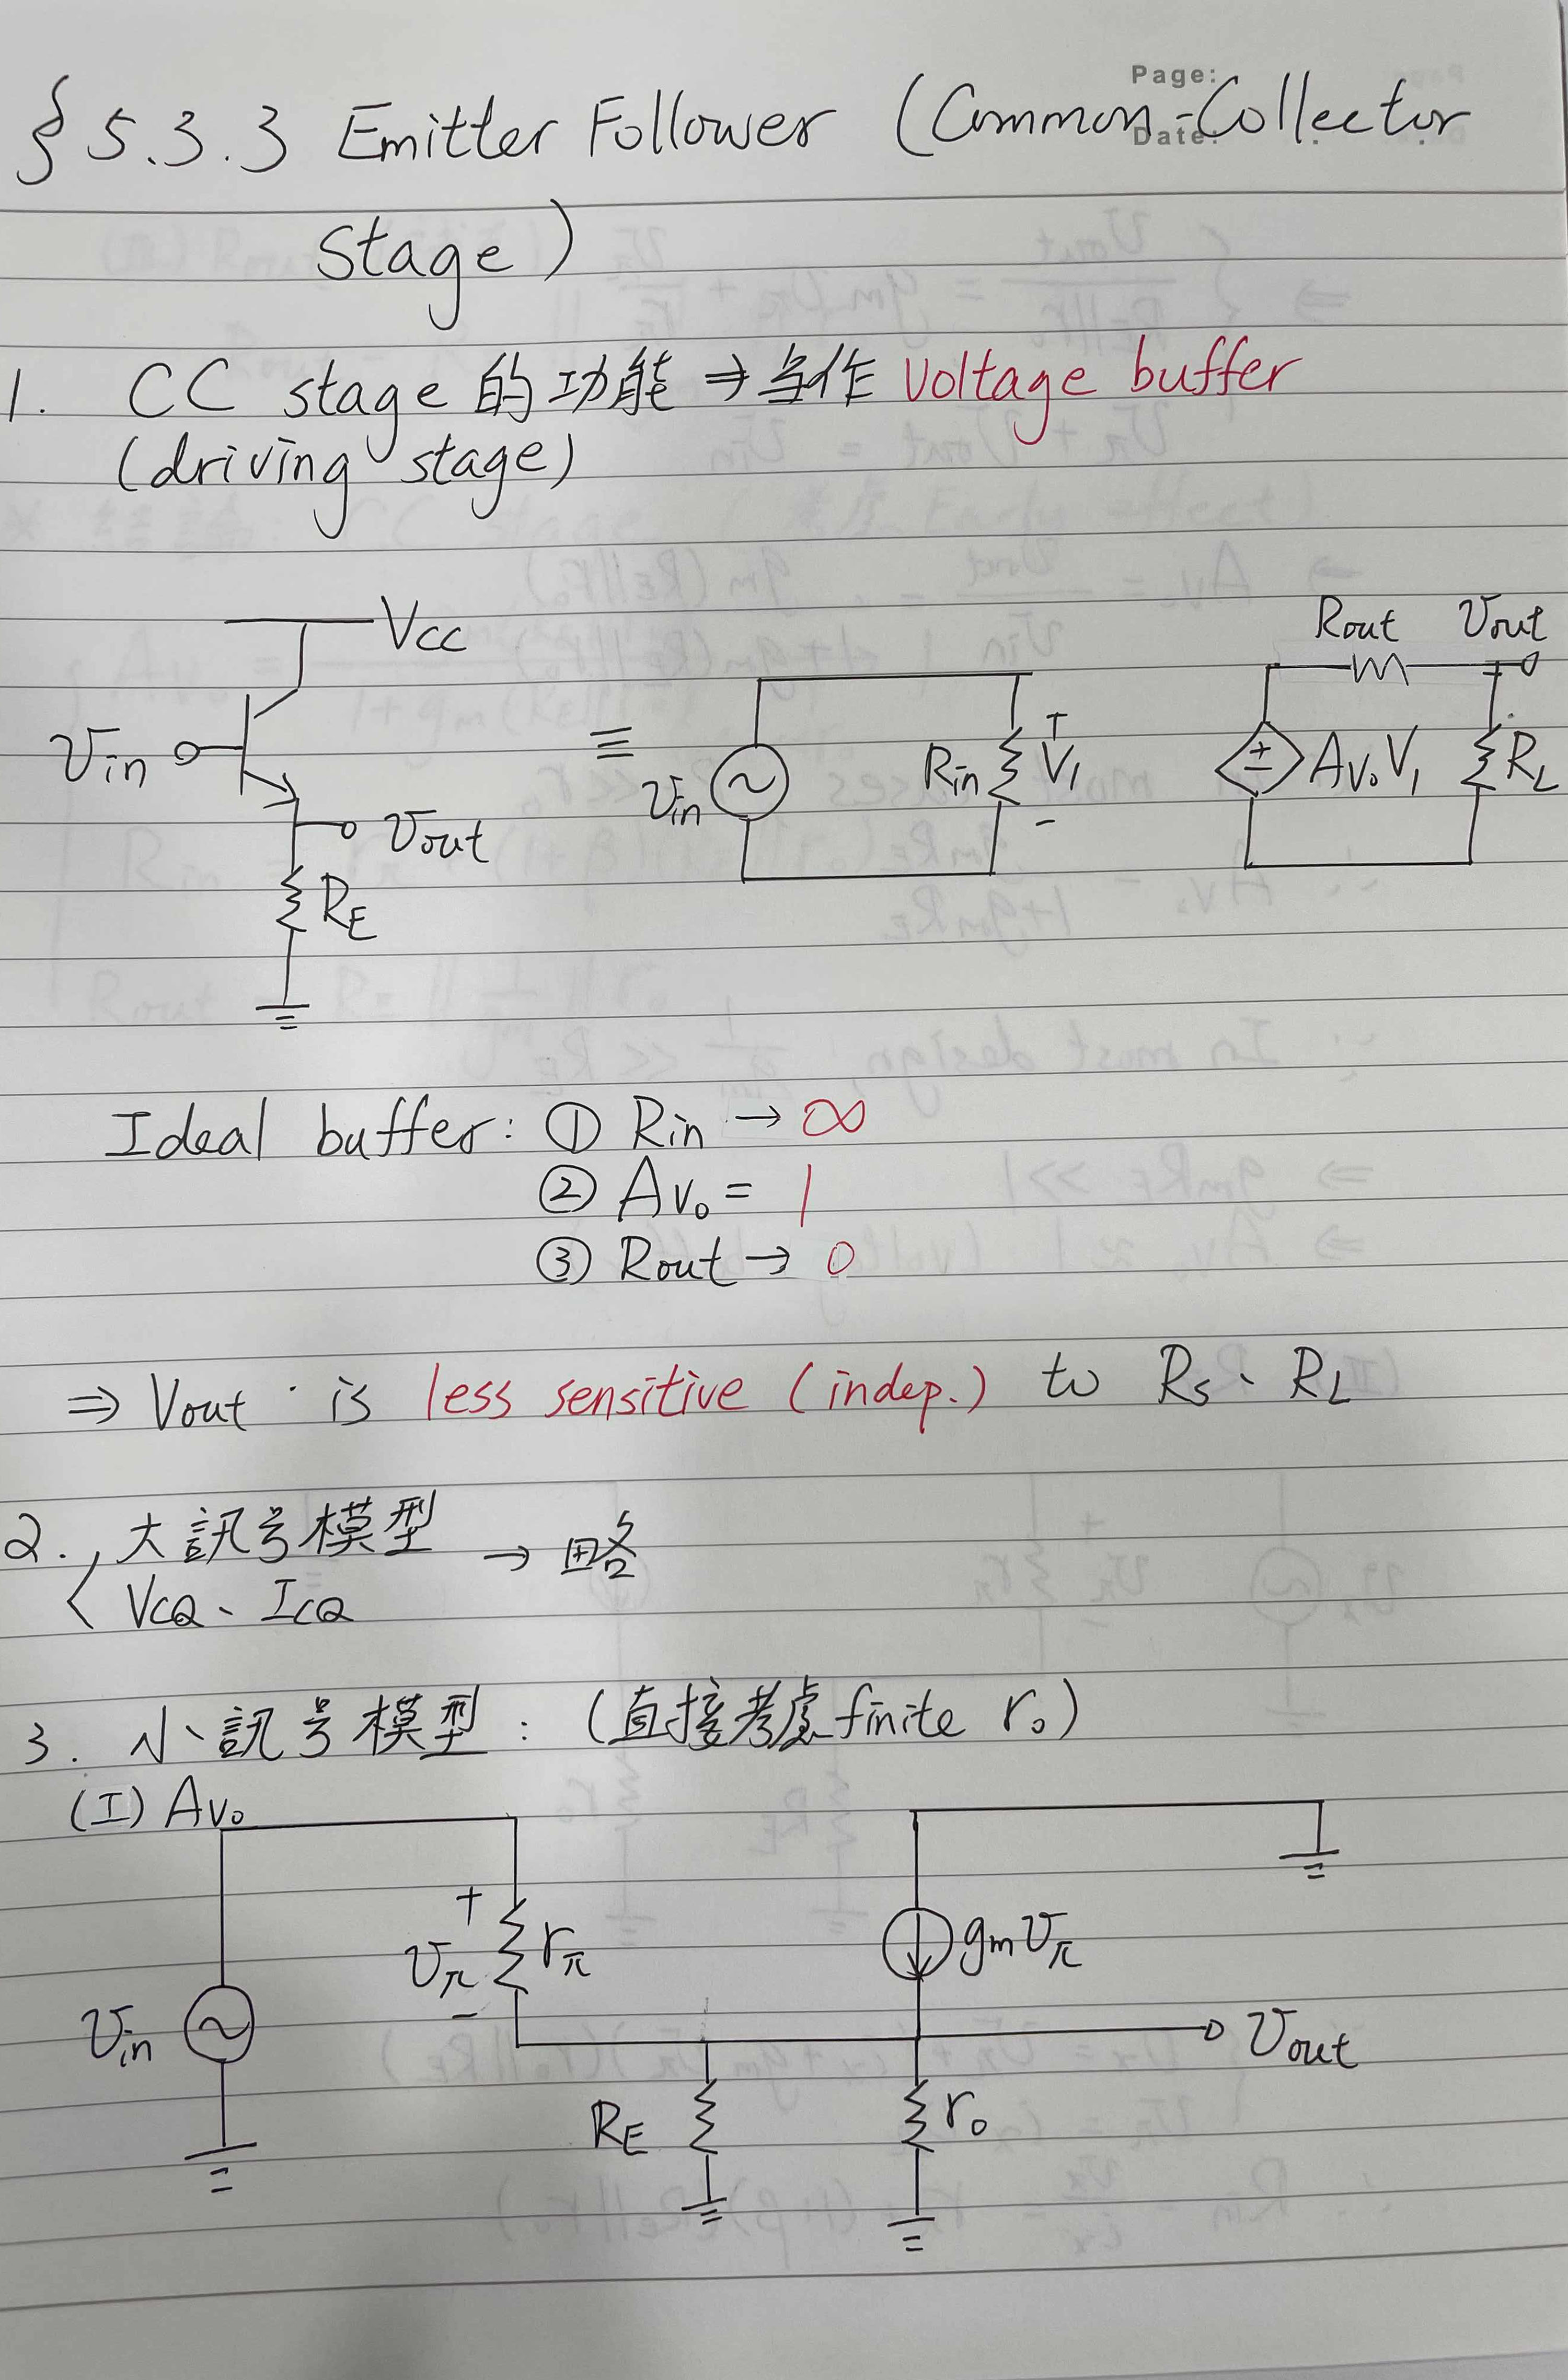 Page:
Date:
§ 5.3.3 Emitter Follower (Common-Collector
Stage)
1. CC stage 的功能 ⇒ 当作 Voltage buffer
(driving stage)
Vcc
Vin
Vout
RE
≡
Vin
Rin
+
V1
-
Rout
Vout
±
Avo V1
RL
Ideal buffer: ① Rin → ∞
② Avo = 1
③ Rout → 0
⇒ Vout is less sensitive (indep.) to Rs、RL
2. 大訊号模型 → 略
VCQ、ICQ
3. 小訊号模型: (直接考慮 finite ro)
(I) Avo
Vin
+
Vπ
-
rπ
gmVπ
Vout
RE
ro